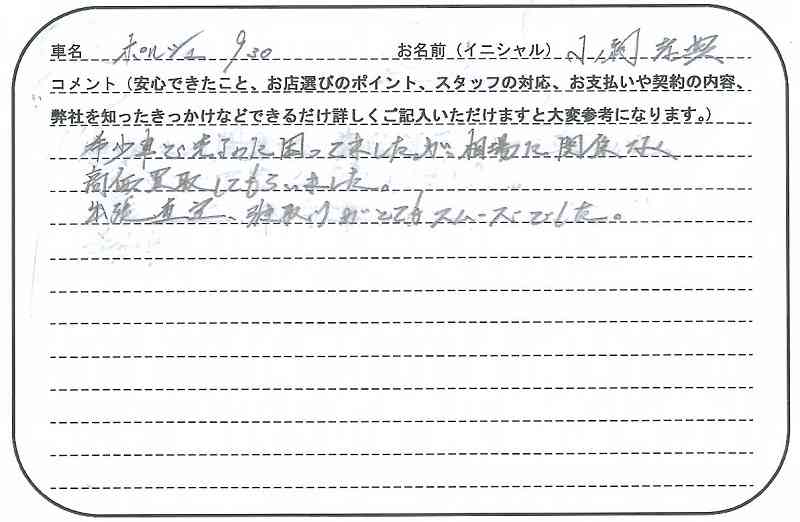 車名 ポルシェ 930 お名前（イニシャル） 小
コメント（安心できたこと、お店選びのポイント、スタッフの対応、お支払いや契約の内容、
弊社を知ったきっかけなどできるだけ詳しくご記入いただけますと大変参考になります。）
希少車で売るのに困ってましたが、相場に関係なく
高価買取してもらいました。
出張査定、引き取りがとてもスムーズでした。